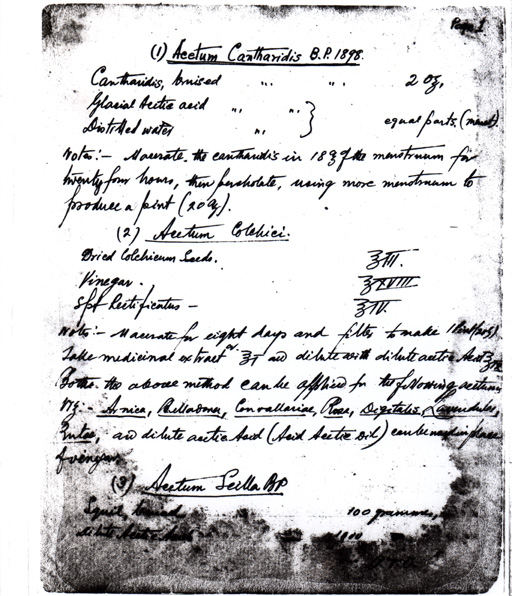 Page 1
(1) Acetum Cantharidis B.P. 1898.
Cantharidis, bruised " " 2 oz,
Glacial Acetic acid " "
Distilled water " } equal parts, (menst).
Notes:- Macerate the cantharidis in 18 ℥ of the menstruum for
twenty four hours, then percholate, using more menstruum to
produce a pint (20 ℥).
(2) Acetum Colchici.
Dried Colchicum Seeds. ℥III.
Vinegar. ℥XVIII
Spt Rectificatus - ℥IV.
Notes:- Macerate for eight days and filter to make 1 Pint
Take medicinal extract ℥I and dilute with dilute acetic Acid
Both the above method can be applied for the following acetum
viz - Arnica, Belladona, Convallariae, Rosae, Digitalis, Lavendulae,
Rutae, and dilute acetic Acid (Acid Acetic Dil) can be used in place
of vinegar
(3) Acetum Scilla BP
Squill bruised 100 grammes,
dilute Acetic Acid 1000